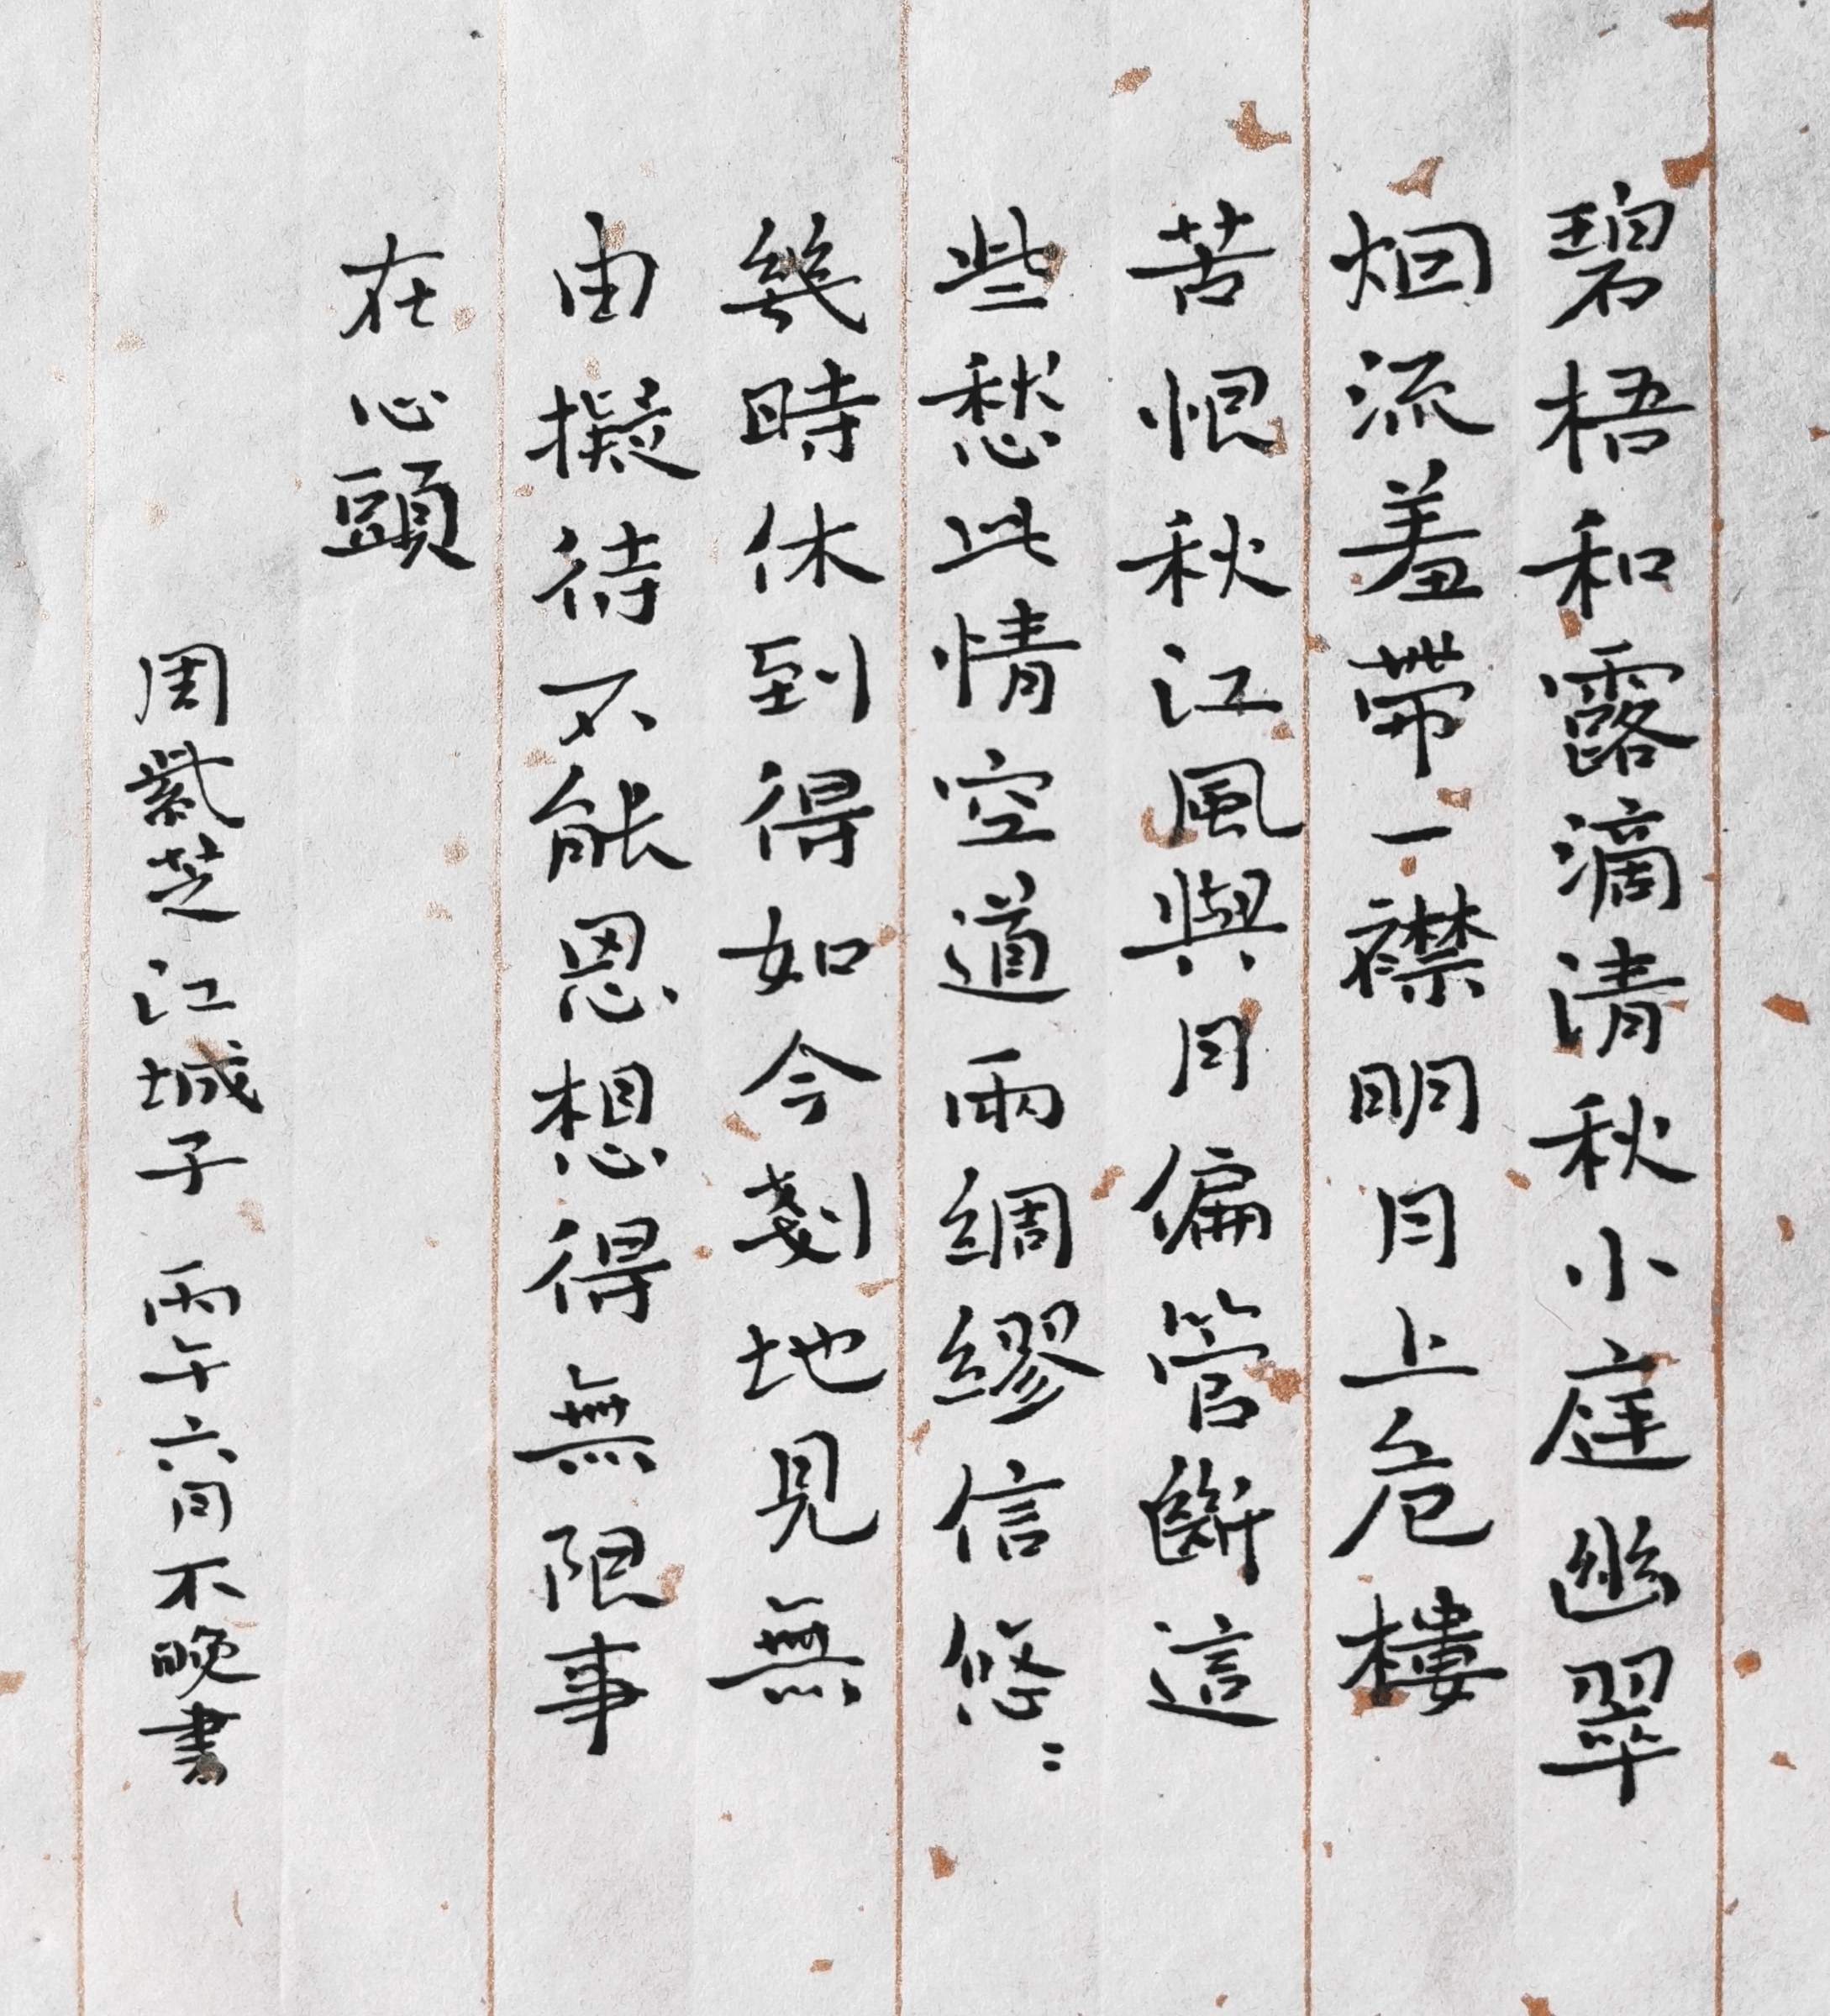 碧梧和露滴清秋小庭幽翠
烟流羞帶一襟明月上危樓
苦恨秋江風與月偏管斷這
些愁此情空道兩綢繆信悠〻
幾時休到得如今剗地見無
由擬待不能思想得無限事
在心頭
周紫芝江城子 丙午六月不晚書